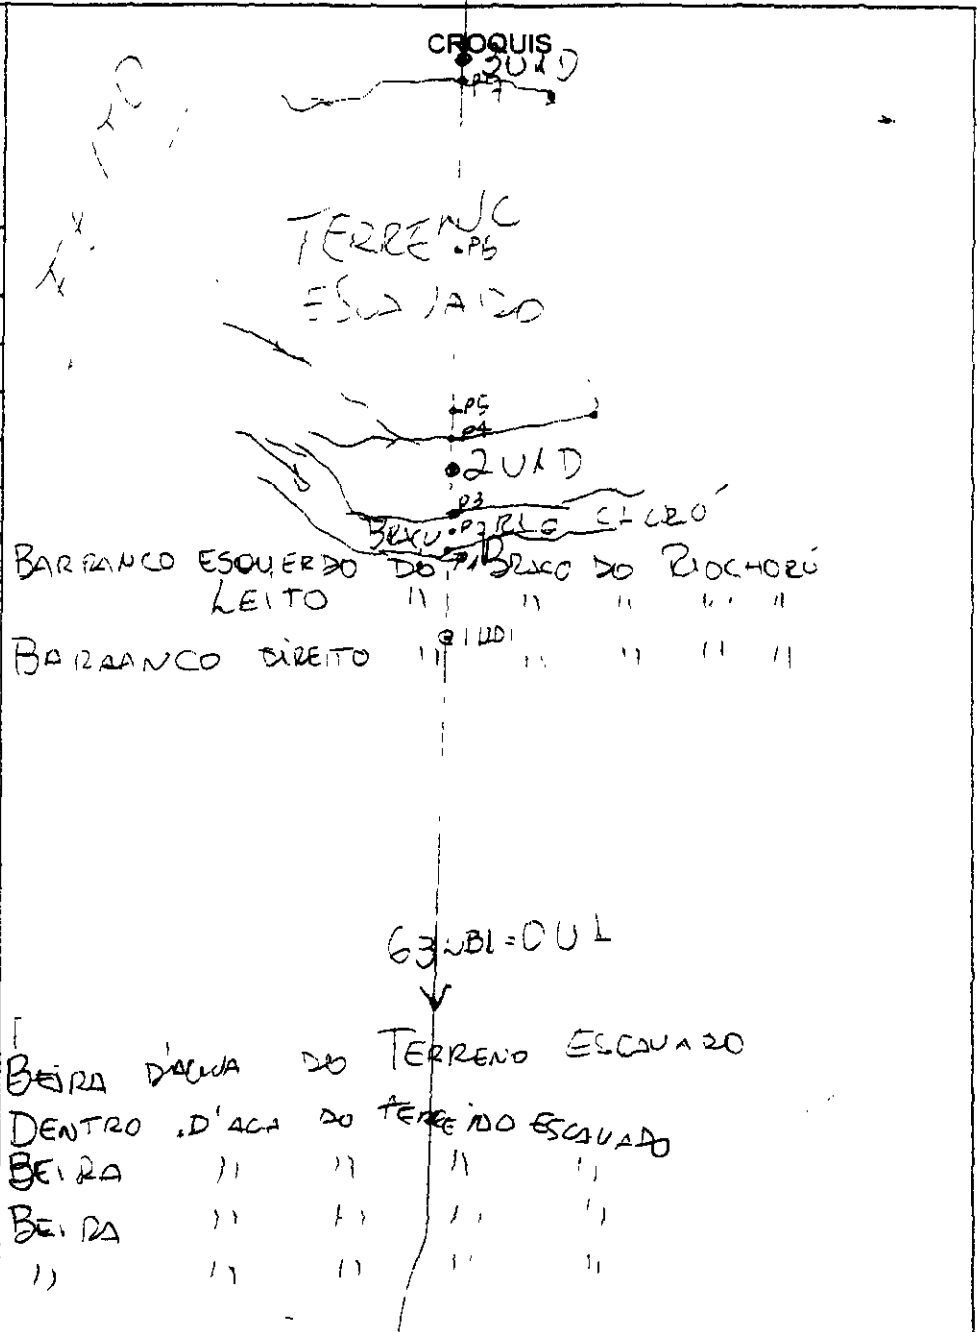 CROQUIS
3U1D
P7
TERRENO
P6
ESCAVADO
P5
P4
2U1D
P3
BRAÇO P2 RIO CHORÓ
P1
BARRANCO ESQUERDO DO BRAÇO DO RIO CHORÓ
LEITO " " " " "
BARRANCO DIREITO " " " " "
BEIRA D'AGUA DO TERRENO ESCAVADO
DENTRO D'AGA DO TERRENO ESCAVADO
BEIRA " " " "
BEIRA " " " "
" " " " "